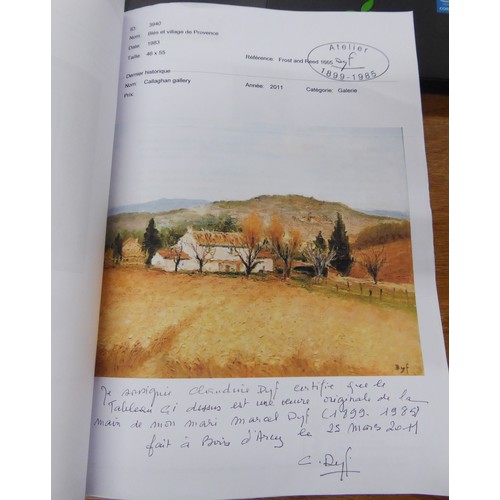 ID: 3840
Nom: Blés et village de Provence
Date: 1983
Taille: 46 x 55
Référence: Frost and Reed 1665
Atelier
Dyf
1899-1985
Dernier historique
Nom: Callaghan gallery Année: 2011 Catégorie: Galerie
Prix:
Dyf
Je soussignée Claudine Dyf certifie que le
Tableau ci dessus est une œuvre originale de la
main de mon mari Marcel Dyf (1899-1985)
fait à Bois d'Arcy le 25 mars 2011
C. Dyf